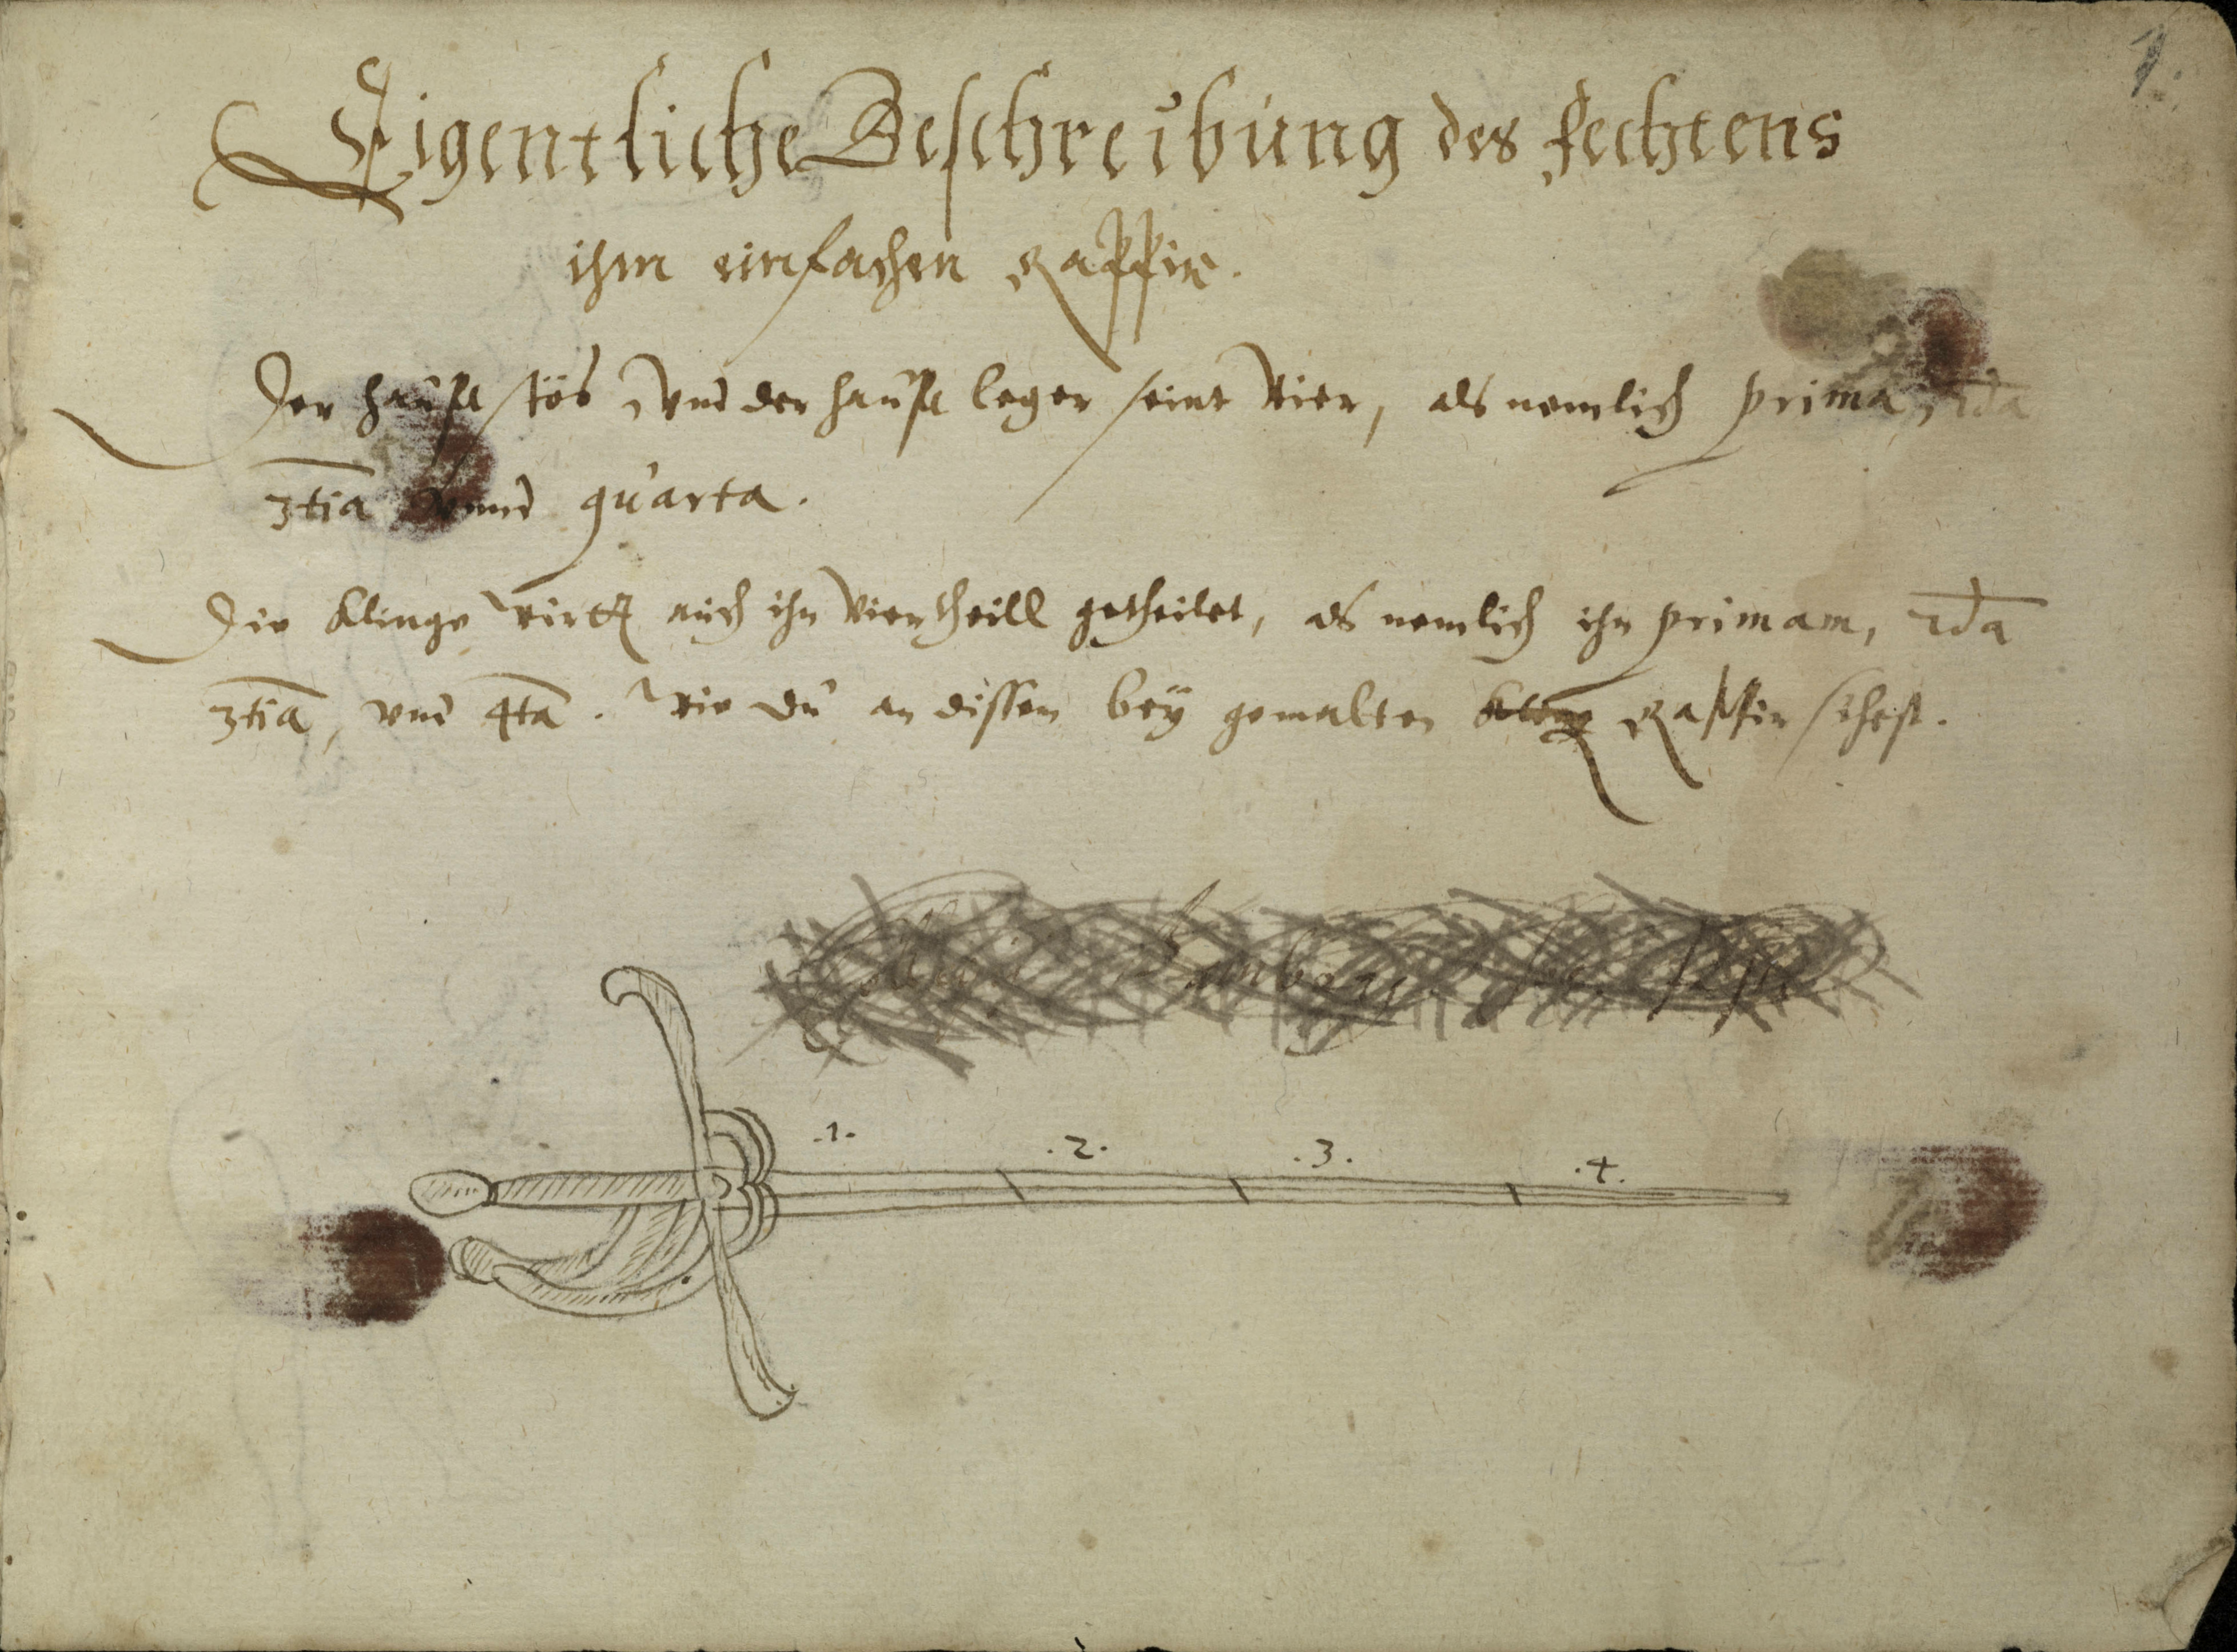 1.
Eigentliche Beschreibung des fechtens
ihm einfachen Rappir.
Der haupt stös vnd der haupt leger seint vier, als nemlich prima, 2da
3tia vnnd quarta.
Die Klinge wirtt auch ihn viertheill getheilet, als nemlich ihn primam, 2da
3tia, vnd 4ta. wie du an dissen bey gemalten Rappir sihest.
.1. .2. .3. .4.